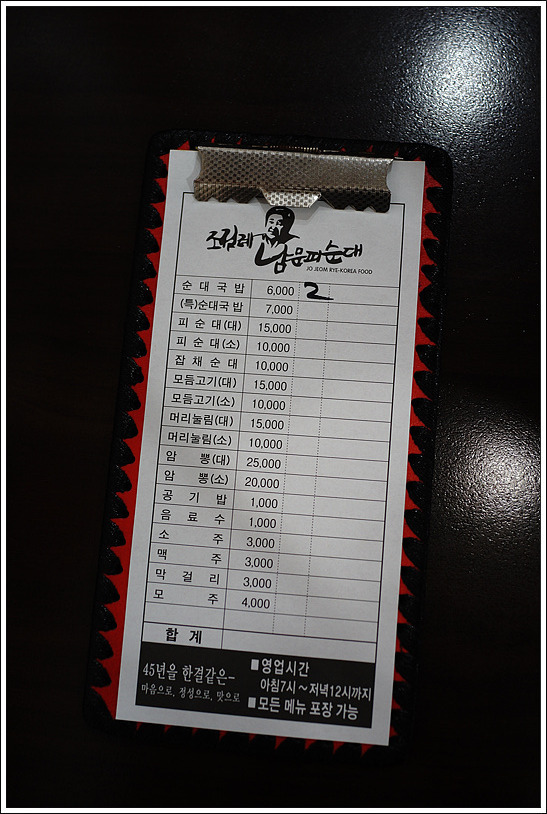 조점례
남문피순대
JO JEOM RYE-KOREA FOOD
순대국밥 6,000 2
(특)순대국밥 7,000
피순대(대) 15,000
피순대(소) 10,000
잡채순대 10,000
모듬고기(대) 15,000
모듬고기(소) 10,000
머리눌림(대) 15,000
머리눌림(소) 10,000
암뽕(대) 25,000
암뽕(소) 20,000
공기밥 1,000
음료수 1,000
소주 3,000
맥주 3,000
막걸리 3,000
모주 4,000
합계
45년을 한결같은-
마음으로, 정성으로, 맛으로
■영업시간
아침7시~저녁12시까지
■모든 메뉴 포장 가능